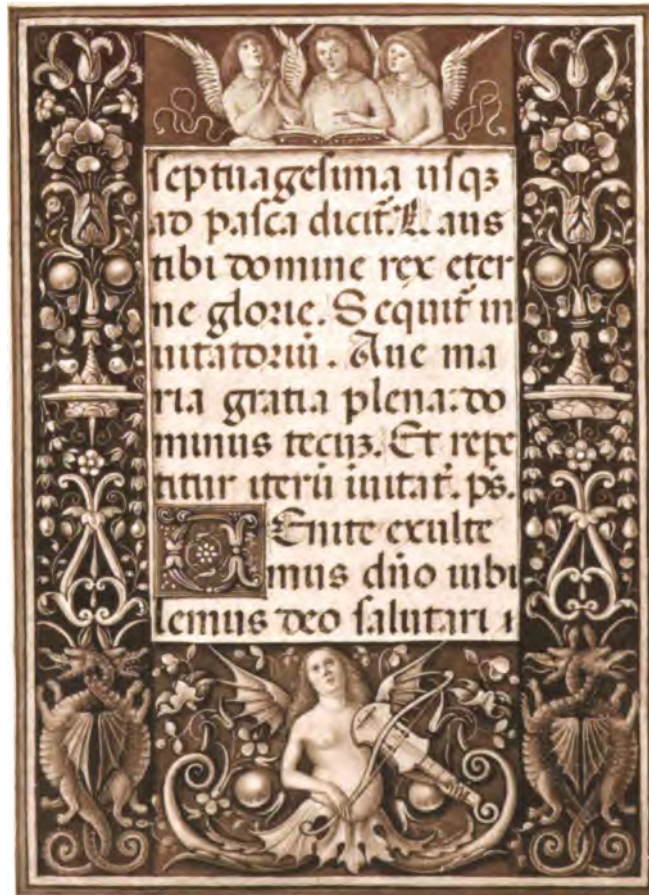 septuagesima usqꝫ
ad pasca dicit᷑. Laus
tibi domine rex eter
ne glorie. Sequit᷑ in
uitatoriū. Aue ma
ria gratia plena: do
minus tecuꝫ. Et repe
titur iterū iuitat᷑. ps̄.
Uenite exulte
mus dn̄o iubi
lemus deo salutari ı